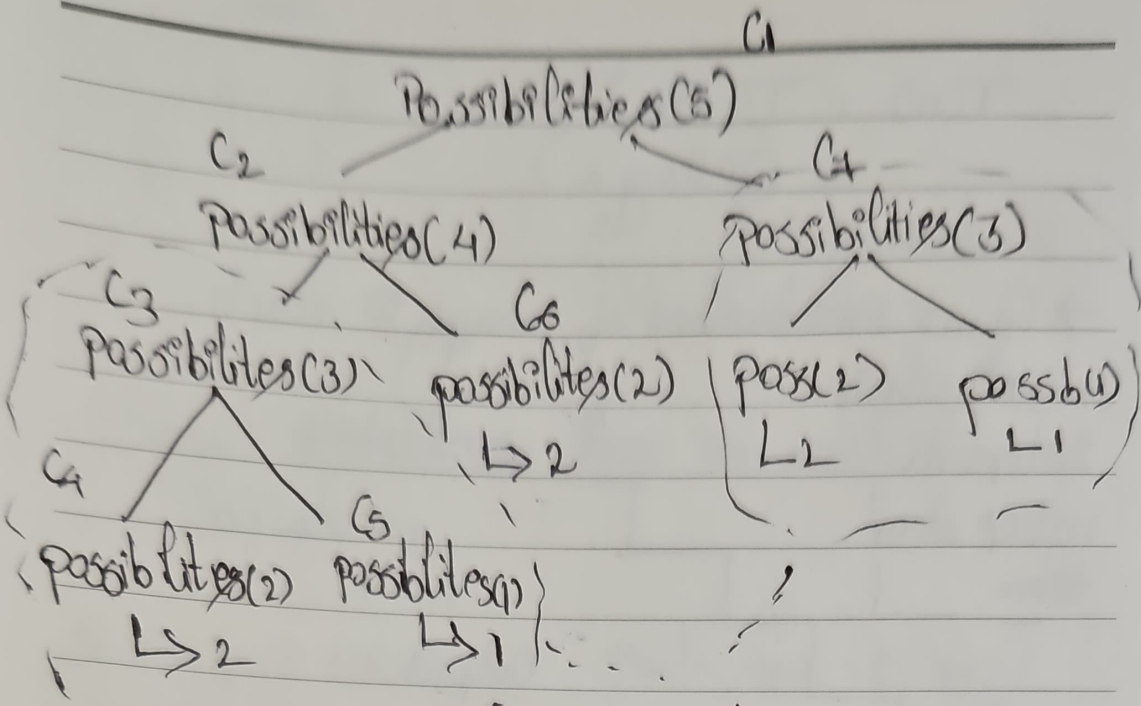 C1
Possibilities(5)
C2 C7
possibilities(4) possibilities(3)
C3 C6
possibilites(3) possibilites(2) poss(2) possb(1)
↳2 L2 L1
C4 C5
possiblites(2) possiblites(1)
↳2 ↳1